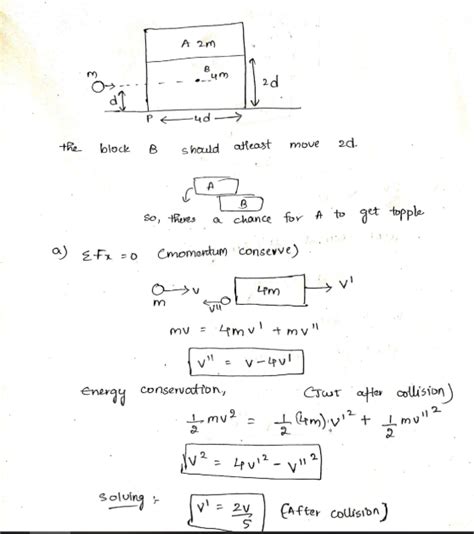 A 2m
m
B
4m
2d
d
P
4d
the block B should atleast move 2d.
A
B
so, theres a chance for A to get topple
a) ΣFx = 0 (momentum conserve)
v
4m
v'
m
v''
mv = 4mv' + mv''
v'' = v-4v'
Energy conservation, (Just after collision)
1/2 mv² = 1/2 (4m)v'² + 1/2 mv''²
v² = 4v'² - v''²
solving :-
v' = 2v/5 (After collision)